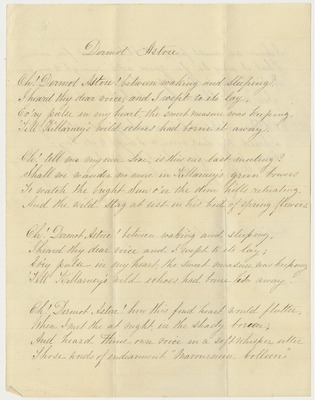 Dermot Astore
Oh! Dermot Astore! between waking and sleeping
I heard thy dear voice, and I wept to its lay,
Ev'ry pulse in my heart, the sweet measure was keeping
Till Killarney's wild echoes had borne it away.
Oh! tell me my own love, is this our last meeting?
Shall we wander no more in Killarney's green bowers
To watch the bright Sun o'er the dim hills retreating
And the wild Stag at rest in his bed of spring flowers
Oh! Dermot Astore! between waking and sleeping,
I heard thy dear voice and I wept to its lay;
Ev'ry pulse in my heart, the sweet measure was keeping
Till Killarney's wild echoes had borne it away.
Oh! Dermot Astor! how this fond heart would flutter,
When I met the at night, in the shady boreen,
And heard thine own voice in a soft whisper utter
Those words of endearment "Mavourneen Colleen"